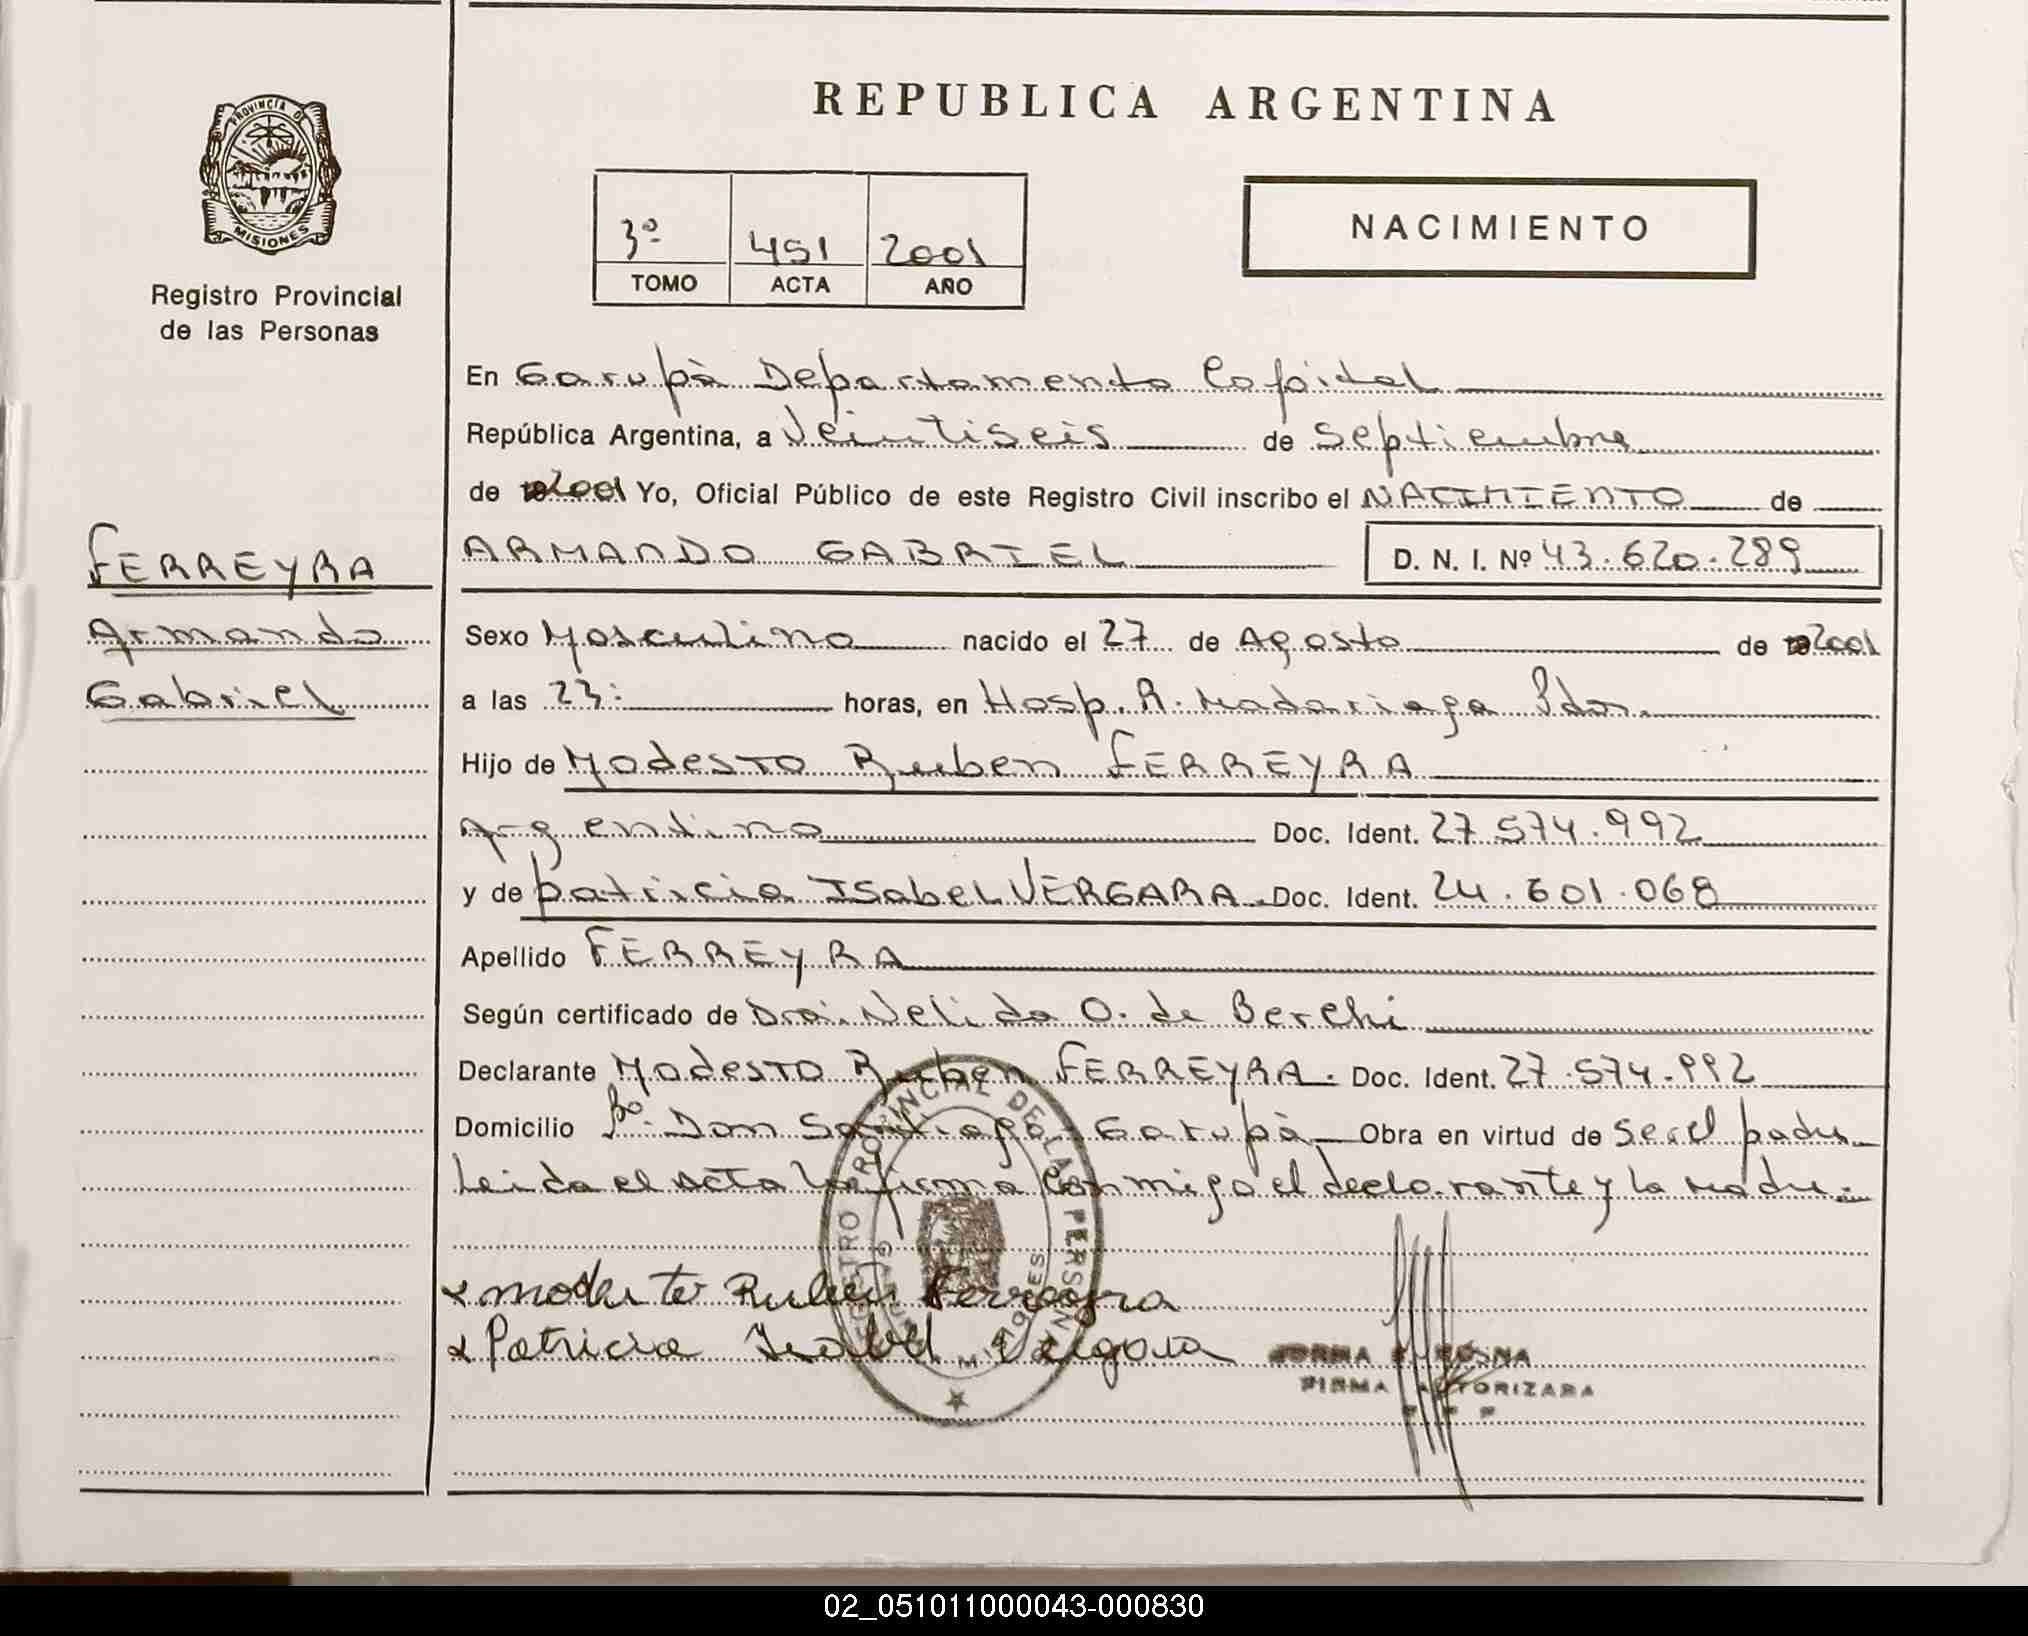 REPUBLICA ARGENTINA
PROVINCIA DE
MISIONES
Registro Provincial
de las Personas
3º 451 2001
TOMO ACTA AÑO
NACIMIENTO
En Garupà Departamento Capital
República Argentina, a Veintiseis de Septiembre
de 2001 Yo, Oficial Público de este Registro Civil inscribo el NACIMIENTO de
FERREYRA
Armando
Gabriel
ARMANDO GABRIEL D. N. I. Nº 43.620.289
Sexo Masculino nacido el 27 de Agosto de 2001
a las 23: horas, en Hosp. R. Madariaga Pdas.
Hijo de Modesto Ruben FERREYRA
Argentino Doc. Ident. 27.574.992
y de Patricia Isabel VERGARA Doc. Ident. 24.601.068
Apellido FERREYRA
Según certificado de Dra. Nelida O. de Berchi
Declarante Modesto Ruben FERREYRA. Doc. Ident. 27.574.992
Domicilio Bº. Don Santiago Garupà Obra en virtud de ser el padre
Leida el acta la firma conmigo el declarante y la madre
Modesto Ruben Ferreyra
Patricia Isabel Vergara
REGISTRO PROVINCIAL DE LAS PERSONAS
MISIONES
FIRMA AUTORIZADA
02_051011000043-000830